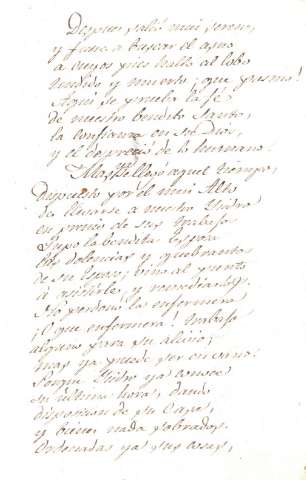 Despues salió mui sereno,
y fuese a buscar el asno
a cuyos pies hallo al lobo
tendido y muerto; que pasmo!
Aqui se prueba la fé
de nuestro bendito Santo,
la confianza en su Dios,
y el desprecio de lo humano.
Mas llegose aquel tiempo,
dispuesto por el mui Alto
de llevarse a nuestro Ysidro
en premio de sus trabajos
Supo la bendita Esposa
las dolencias y quebrantos
de su Esposo; vino al punto
á asistirle, y remediarlo.
No perdonó la enfermera
¡O que enfermera! trabajo
alguno para su alivio;
mas ya puede ser en vano:
Porque Ysidro ya conoce
su última hora; dando
disposicion de su Casa,
y bienes nada sobrados.
Ordenadas ya sus cosas,